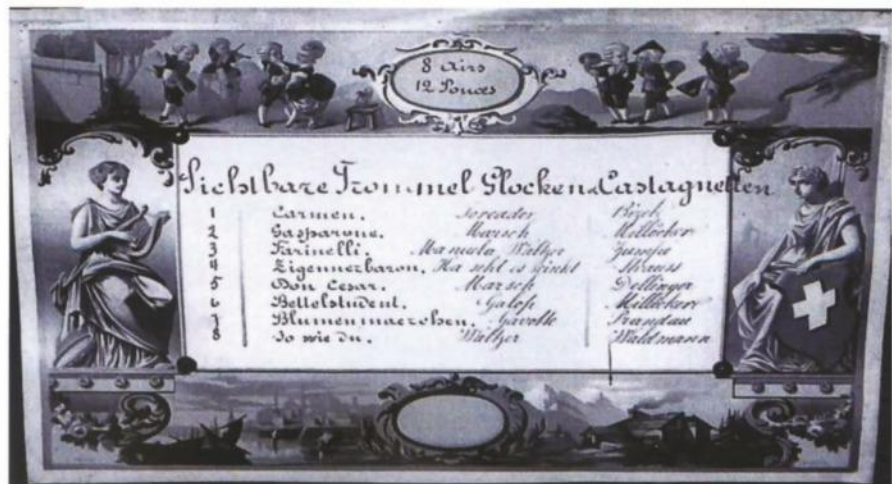 8 Airs
12 Pouces
Sichtbare Trommel Glocken u. Castagnetten
1 Carmen. Toreador Bizet
2 Gasparone. Marsch Millöcker
3 Farinelli. Manuela Walzer Zumpe
4 Zigeunerbaron. Ha seht es winkt Strauss
5 Don Cesar. Marsch Dellinger
6 Bettelstudent. Galop Millöcker
7 Blumenmaerchen. Gavotte
8 So wie du. Walzer Waldmann